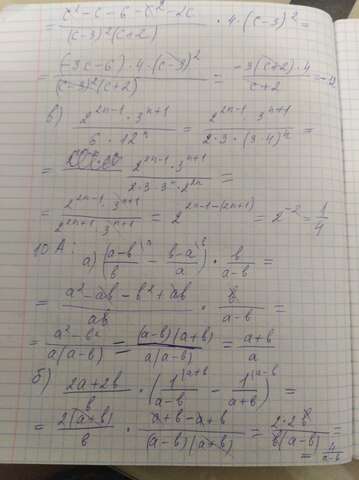 = (c² - c - 6 - c² - 2c) / ((c-3)²(c+2)) · 4 · (c-3)² =
= ((-3c-6) · 4 · (c-3)²) / ((c-3)²(c+2)) = (-3(c+2) · 4) / (c+2) = -12
в) (2^(2n-1) · 3^(n+1)) / (6 · 12^n) = (2^(2n-1) · 3^(n+1)) / (2 · 3 · (3·4)^n) =
= (2^(2n-1) · 3^(n+1)) / (2 · 3 · 3^n · 2^(2n)) =
= (2^(2n-1) · 3^(n+1)) / (2^(2n+1) · 3^(n+1)) = 2^(2n-1-(2n+1)) = 2^(-2) = 1/4
10 А:
а) ((a-b)/b - (b-a)/a) · b/(a-b) =
= (a² - ab - b² + ab) / ab · b/(a-b) =
= (a² - b²) / (a(a-b)) = ((a-b)(a+b)) / (a(a-b)) = (a+b)/a
б) (2a+2b)/b · (1/(a-b) - 1/(a+b)) =
= 2(a+b)/b · (a+b-a+b) / ((a-b)(a+b)) = (2·2b) / (b(a-b)) =
= 4/(a-b)